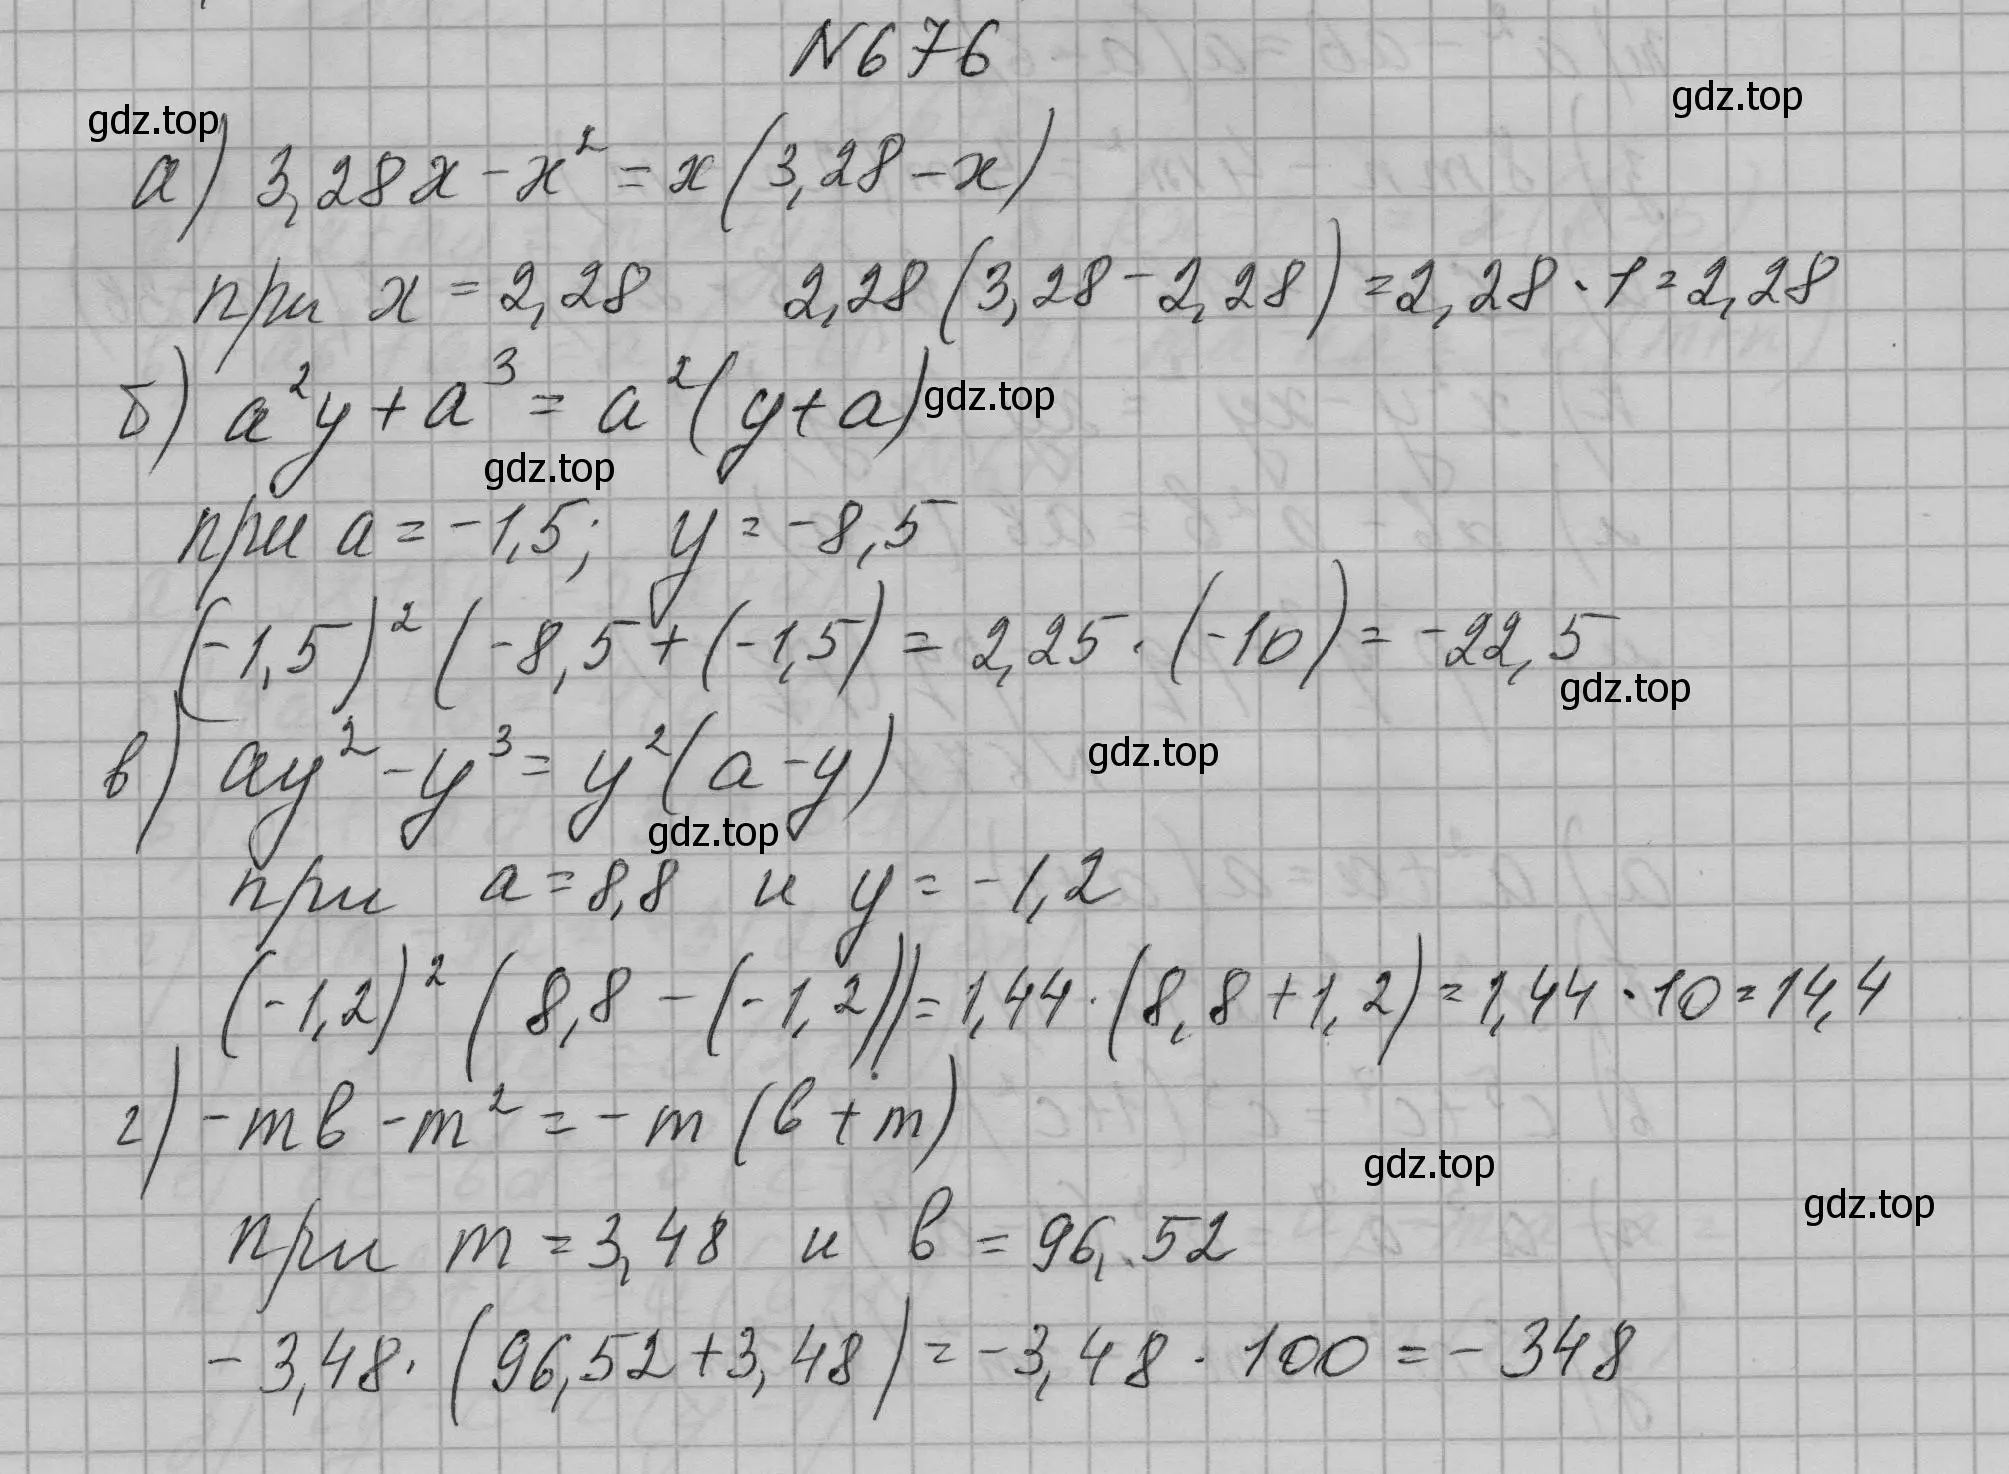 N676
gdz.top
gdz.top
а) 3,28x - x² = x(3,28 - x)
при x = 2,28   2,28(3,28 - 2,28) = 2,28 · 1 = 2,28
б) a²y + a³ = a²(y + a)
gdz.top
gdz.top
при a = -1,5; y = -8,5
(-1,5)² (-8,5 + (-1,5) = 2,25 · (-10) = -22,5
gdz.top
в) ay² - y³ = y²(a - y)
gdz.top
gdz.top
при a = 8,8 и y = -1,2
(-1,2)² (8,8 - (-1,2)) = 1,44 · (8,8 + 1,2) = 1,44 · 10 = 14,4
г) -mb - m² = -m(b + m)
gdz.top
gdz.top
при m = 3,48 и b = 96,52
-3,48 · (96,52 + 3,48) = -3,48 · 100 = -348